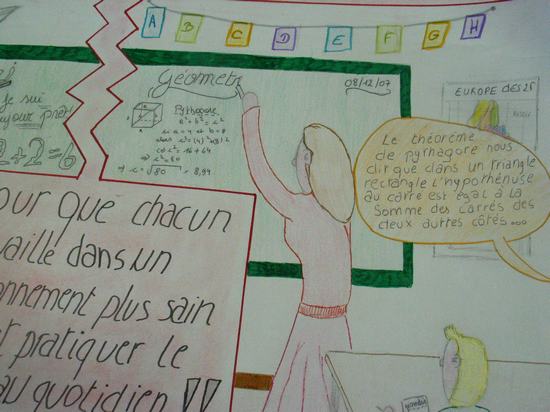 A B C D E F G H
Géometr
08/12/07
Pythagore
a² + b² = c²
si a = 4 et b = 8
alors c² = (4)² + (8)²
c² = 16 + 64
c² = 80
c = √80 = 8,94
EUROPE DES 2
Je sui
jour prêt
2+2=6
Le théorème
de pythagore nous
dit que dans un triangle
rectangle l'hypothénuse
au carré est égal à la
somme des carrés des
deux autres côtés...
our que chacun
vaille dans un
onnement plus sain
t pratiquer le
au quotidien !!